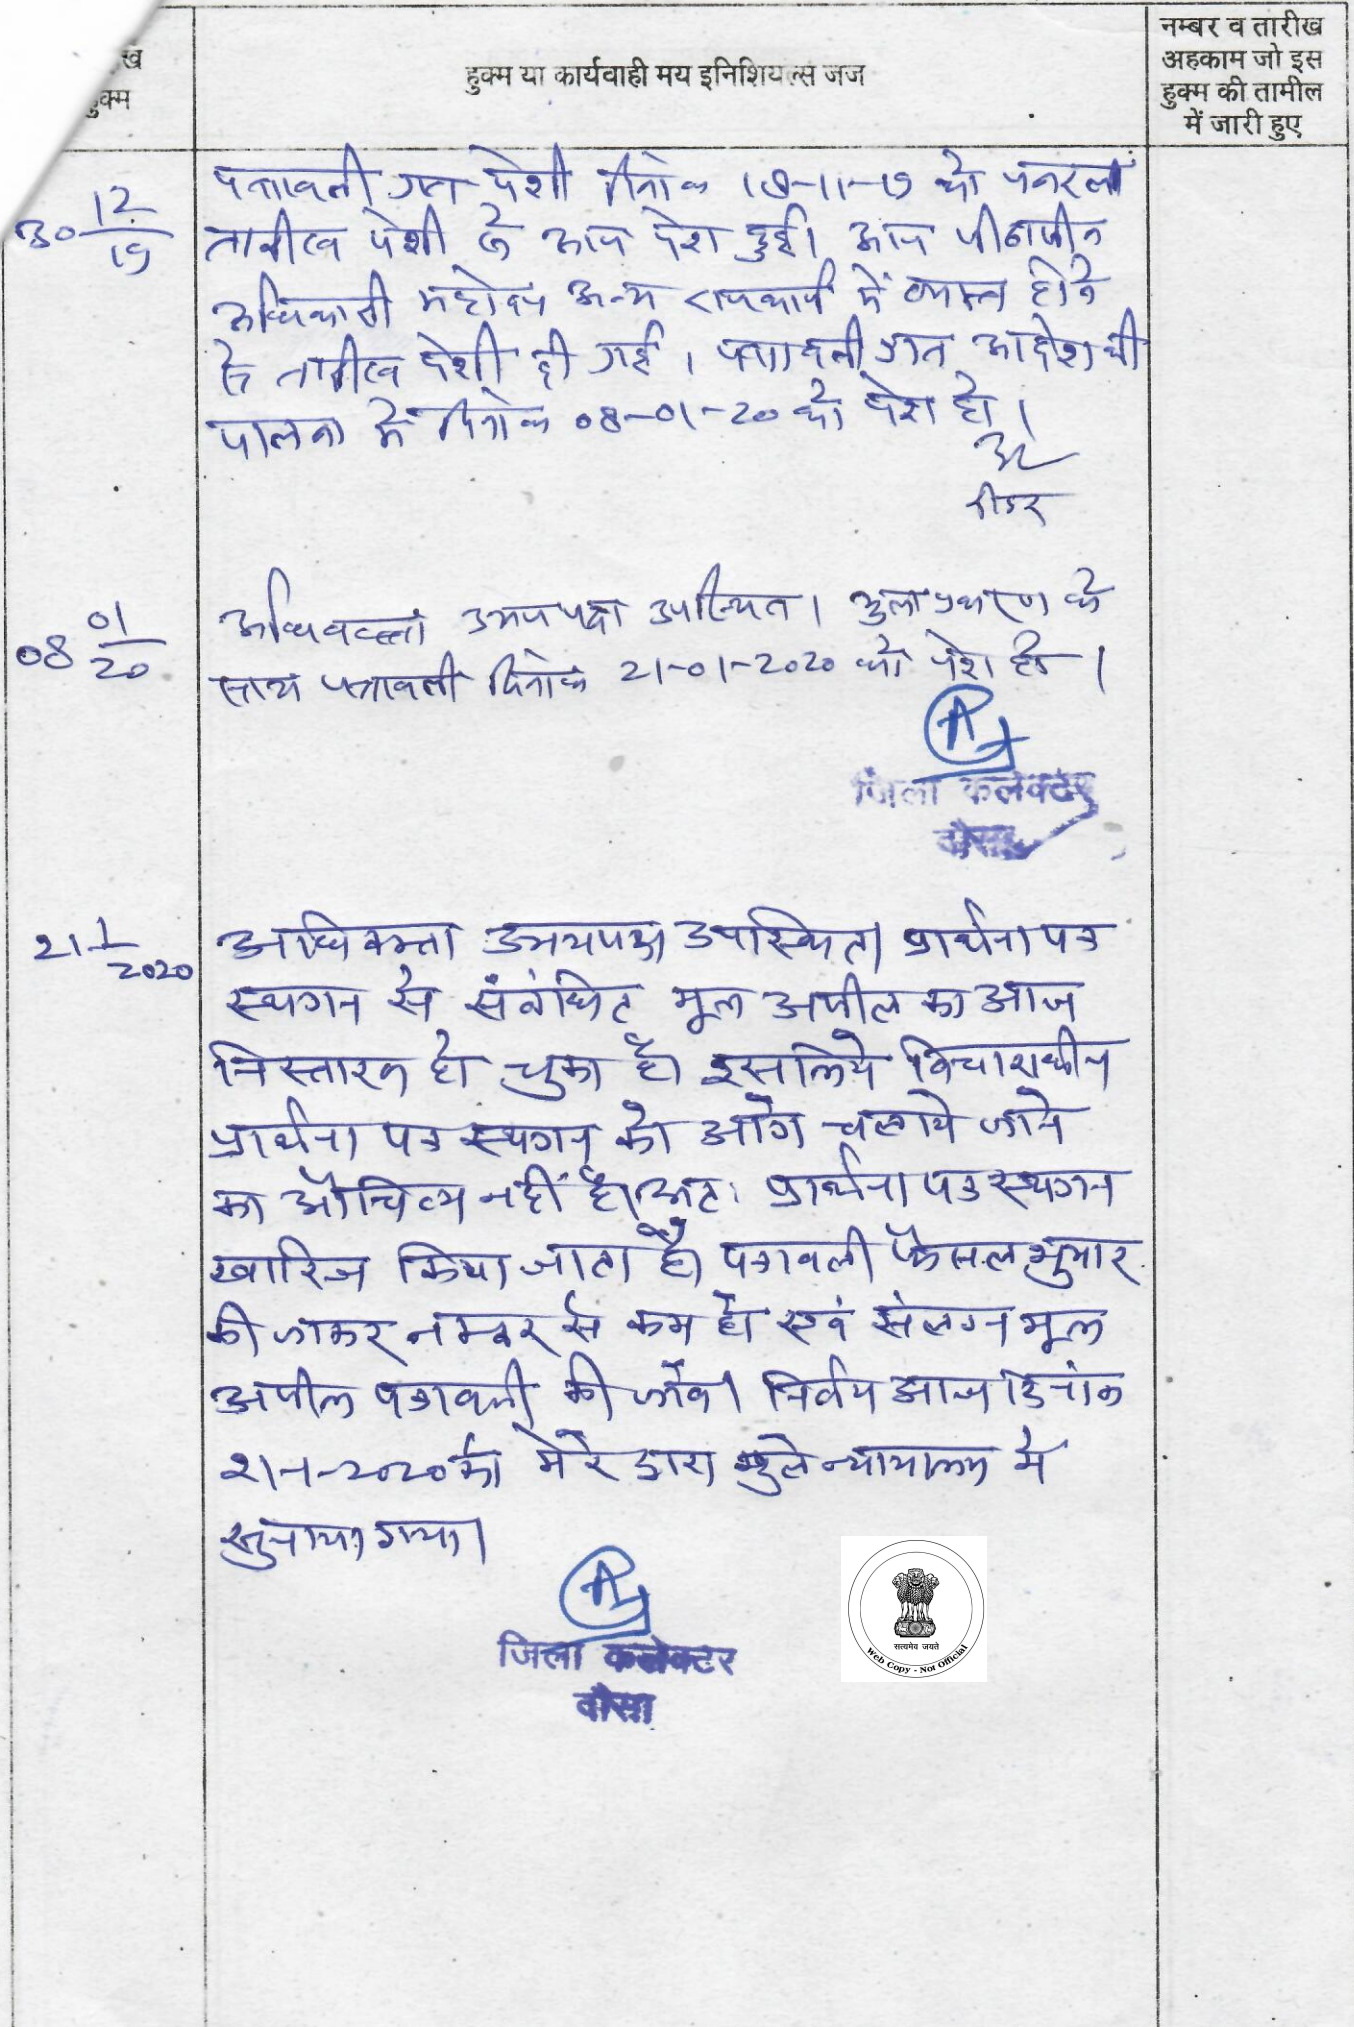 नम्बर व तारीख
अहकाम जो इस
हुक्म की तामील
में जारी हुए
हुक्म या कार्यवाही मय इनिशियल्स जज
हुक्म
30 12/19
पत्रावली गत पेशी दिनांक को
तारीख पेशी से आज पेश हुई। आज पीठासीन
अधिकारी महोदय अन्य राजकार्य में व्यस्त होने
से तारीख पेशी दी गई। पत्रावली गत आदेश की
पालना में दिनांक 08-01-20 को पेश हो।
रीडर
08 01/20
अधिवक्ता उभयपक्ष उपस्थित। मूल प्रकरण के
साथ पत्रावली दिनांक 21-01-2020 को पेश हो।
जिला कलेक्टर
दौसा
21 1/2020
अधिवक्ता उभयपक्ष उपस्थित। प्रार्थना पत्र
स्थगन से संबंधित मूल अपील का आज
निस्तारण हो चुका है। इसलिये विचाराधीन
प्रार्थना पत्र स्थगन को आगे चलाये जाने
का औचित्य नहीं है। अतः प्रार्थना पत्र स्थगन
खारिज किया जाता है। पत्रावली फैसल शुमार
की जाकर नम्बर से कम हो एवं संलग्न मूल
अपील पत्रावली की जावे। निर्णय आज दिनांक
21-1-2020 को मेरे द्वारा खुले न्यायालय में
सुनाया गया।
जिला कलेक्टर
दौसा
सत्यमेव जयते
Web Copy - Not Official